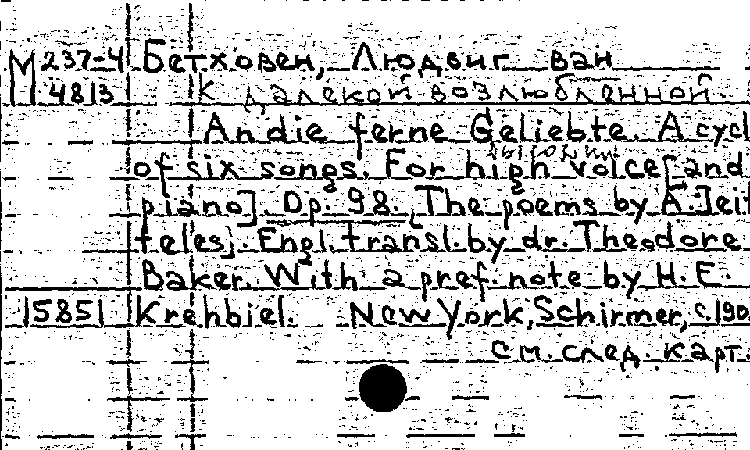 М 237-4 Бетховен, Людвиг ван
4813 К далекой возлюбленной.
An die ferne Geliebte. A cycl
of six songs. For high voice [and
piano]. Op. 98. [The poems by A. Jeit
teles]. Engl. transl. by dr. Theodore
Baker. With a pref. note by H. E.
15851 Krehbiel. New York, Schirmer, c. 190
См. след. карт.